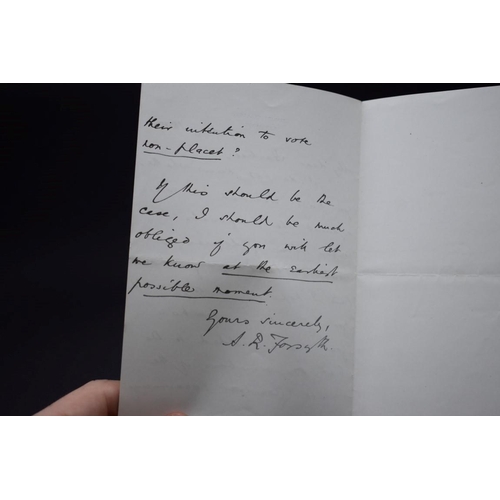 their intention to vote
non-placet?
If this should be the
case, I should be much
obliged if you will let
me know at the earliest
possible moment.
Yours sincerely,
A. R. Forsyth.